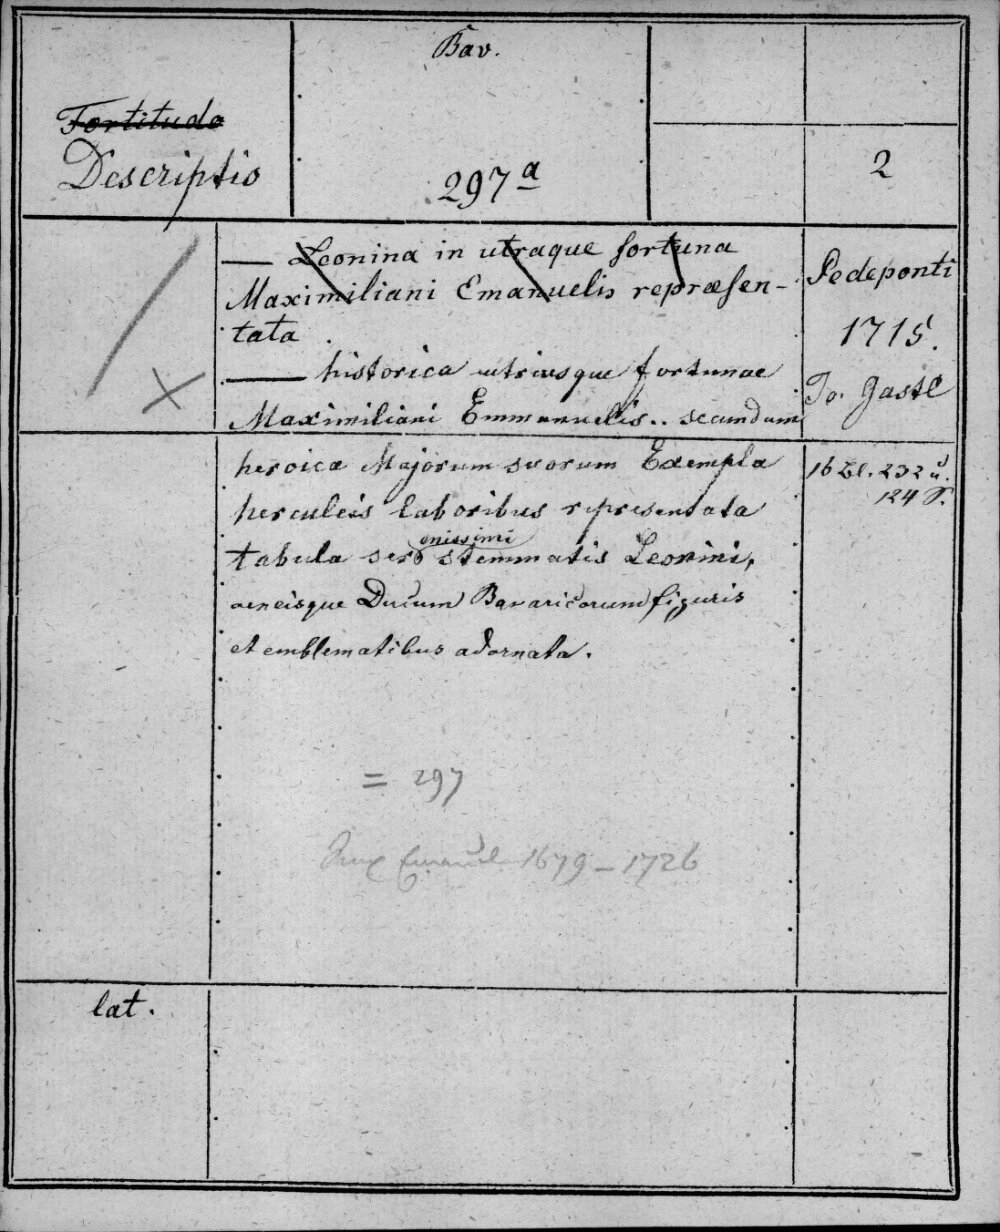 Bav.
Fortitudo
Descriptio
297 a
2
— Leonina in utraque fortuna
Maximiliani Emanuelis repræsen-
tata
— historica utriusque fortunae
Maximiliani Emmanuelis.. secundum
heroica Majorum suorum Exempla
herculeis laboribus representata
onissimi
tabula sero stemmatis Leonini,
aeneisque Ducum Bavaricorum figuris
et emblematibus adornata.
Pedeponti
1715.
Jo. Gastl
16 Bl. 232 u.
124 S.
= 297
Max Emanuel 1679–1726
lat.